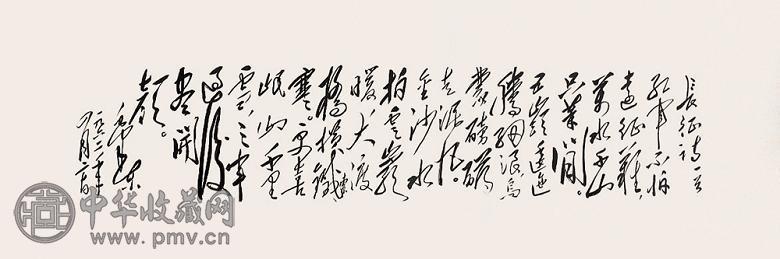 長征詩一首
紅軍不怕
遠征難，
萬水千山
只等閑。
五嶺逶迤
騰細浪，烏
蒙磅礴
走泥丸。
金沙水
拍雲崖
暖，大渡
橋橫鐵索
寒。更喜
岷山千里
雪，三軍
過後
盡開
顏。
毛澤東
一九六二年
四月二十日
中华收藏网
www.pmv.cn